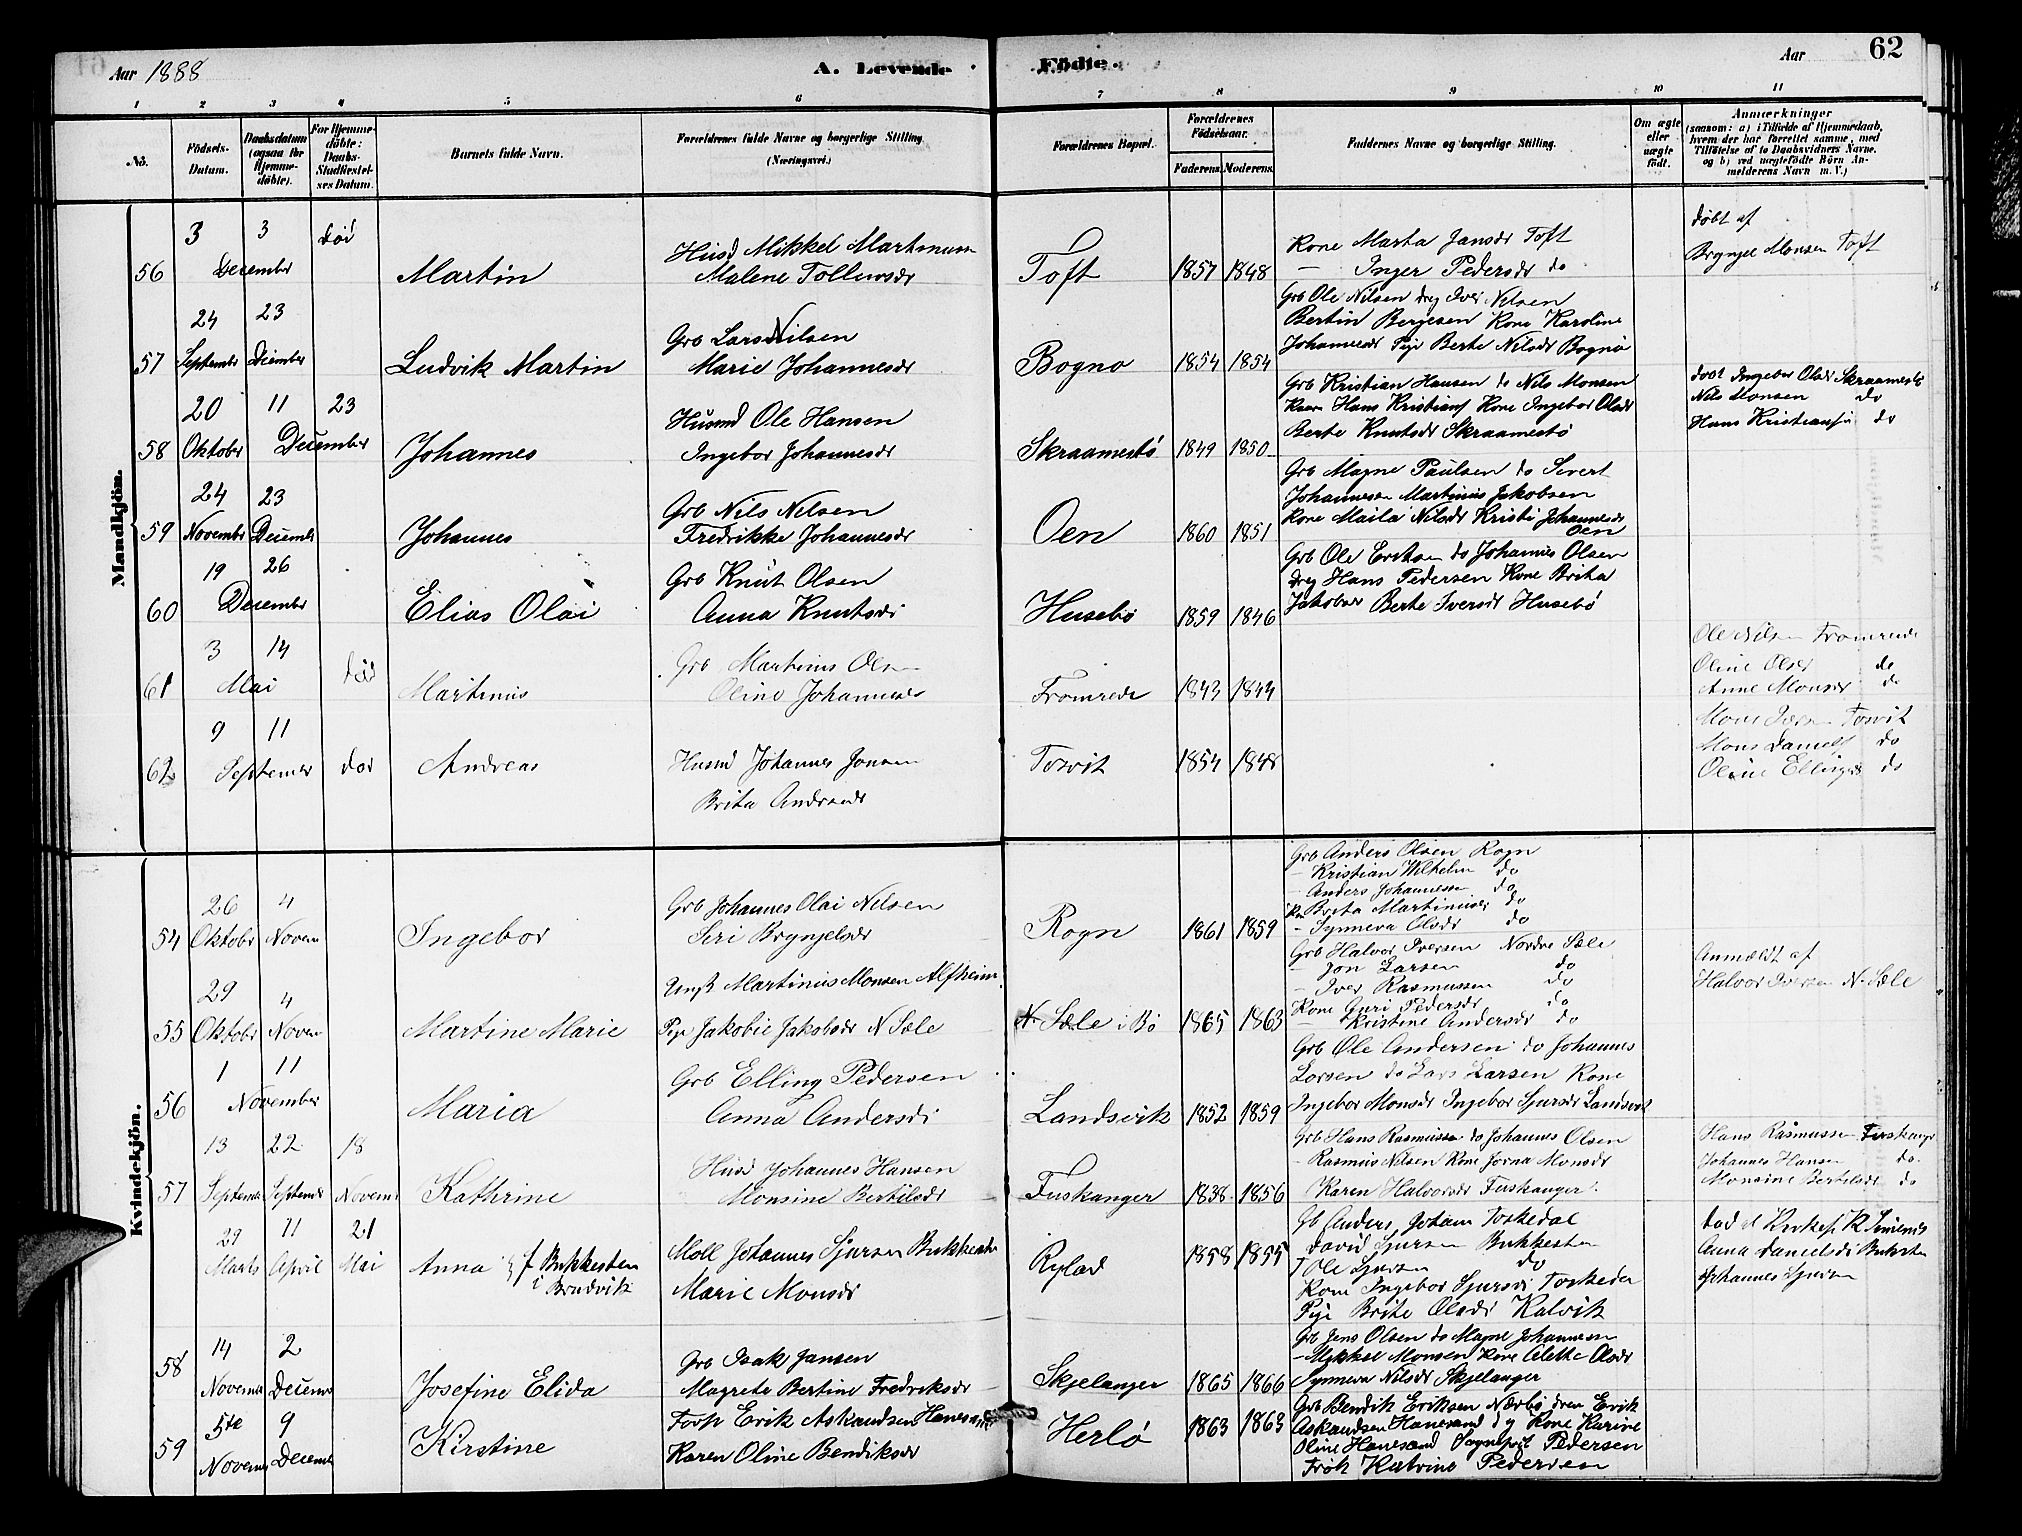 Aar 1888
A. Levende
Födte.
Aar
62
1 2 3 4 5 6 7 8 9 10 11
No.
Födsels-Datum.
Daabsdatum (ogsaa for Hjemme-döbte).
For Hjemme-döbte: Daabs-Stadfæstel-ses Datum.
Barnets fulde Navn.
Forældrenes fulde Navne og borgerlige Stilling. (Næringsvei.)
Forældrenes Bopæl.
Forældrenes Födselsaar.
Faderens. Moderens.
Faddernes Navne og borgerlige Stilling.
Om ægte eller uægte födt.
Anmærkninger (saasom: a) i Tilfælde af Hjemmedaab, hvem der har forrettet samme, med Tilföielse af to Daabsvidners Navne. og b) ved uægtefödte Börn An-melderens Navn m. V.)
Mandkjön.
56 3 3 December död
Martin
Husd Mikkel Martinusen
Malene Tollevsdr
Toft 1857 1848
Kone Marta Jansdr Toft
— Inger Pedersdr do
döbt af
Brynjel Monsen Toft
57 24 September 23 December
Ludvik Martin
Grb Lars Nilsen
Marie Johannesdr
Bogno 1854 1854
Grb Ole Nilsen drg Iver Nilsen
Bertin Berjesen Kone Karoline
Johannesdr Pije Berte Nilsdr Bognö
58 20 Oktober 11 23 December
Johannes
Husmd Ole Hansen
Ingebor Johannesdr
Skraamestö 1849 1850
Grb Kristian Hansen do Nils Monsen
Hans Kristians Kone Ingebor Olsdr
Berte Knutsdr Skraamestö
döbt Ingebor Olsdr Skraamestö
Nils Monsen do
Hans Kristians do
59 24 November 23 December
Johannes
Grb Nils Nilsen
Fredrikke Johannesdr
Oen 1860 1851
Grb Magne Paulsen do Sivert
Johannesen Martinus Jakobsen
Kone Maila Nilsdr Kristi Johannesdr
Oen
60 19 26 December
Elias Olai
Grb Knut Olsen
Anna Knutsdr
Husebö 1859 1846
Grb Ole Eriksen do Johannes Olsen
drg Hans Pedersen Kone Brita
Jakobsdr Berte Iversdr Husebö
61 3 14 Mai död
Martinus
Grb Martinus Olsen
Oline Johannesdr
Fromrede 1843 1844
Ole Nilsen Fromrede
Oline Olsdr do
Anne Monsdr do
62 9 11 September
Andreas
Husmd Johannes Jonsen
Brita Andersdr
Tosvit 1854 1848
Mons Tosvit
Mons Daniels do
Oline Ellingsdr do
Kvindekjön.
54 26 Oktober 4 Novem
Ingebor
Grb Johannes Olai Nilsen
Siri Brynjelsdr
Rogn 1861 1859
Grb Anders Olsen Rogn
— Kristian Wilhelm do
— Anders Johannessen do
Kone Brita Martinusdr do
— Synneva Olsdr do
55 29 Oktober 4 Novem
Martine Marie
Ungk Martinus Monsen Alfheim
Pije Jakobie Jakobsdr N Sæle
N. Sæle i Bö 1865 1863
Grb Halvor Iversen Nordre Sæle
— Jon Larsen do
— Iver Rasmussen do
Kone Guri Pedersdr do
— Kristine Andersdr do
Anmældt af
Halvor Iversen N. Sæle
56 1 11 November
Maria
Grb Elling Pedersen
Anna Andersdr
Landsvik 1852 1859
Grb Ole Andersen do Johannes
Larsen do Lars Larsen Kone
Ingebor Monsdr Ingebor Sjursdr Landsvik
57 13 September 22 September 18 Novem
Kathrine
Husd Johannes Hansen
Monsine Bertilsdr
Fuskanger 1838 1856
Grb Hans Rasmussen do Johannes Olsen
— Rasmus Nilsen Kone Jorna Monsdr
Karen Halvorsdr Fuskanger
Hans Rasmussen Fuskanger
Johannes Hansen do
Monsine Bertilsdr do
29 Marts 11 April 21 Mai
Anna f Bukkesten
i Brudvik
Moll Johannes Sjursen Bukkesten
Marie Monsdr
Rylad 1858 1855
Gb Anders Johan Toskedal
David Sjursen Bukkesten
Ole Sjursen do
Kone Ingebor Sjursdr Toskedal
Pije Brite Olsdr Kalvik
Anna Danielsdr Buksten
Johannes Sjursen
58 14 Novem 2 Decem
Josefine Elida
Grb Isak Jansen
Magrete Bertine Fredriksdr
Skjelanger 1865 1866
Grb Jens Olsen do Magne Johannesen
— Mikkel Monsen Kone Alette Olsdr
Synneva Nilsdr Skjelanger
59 5te Novem 9 Decem
Kirstine
Forp Erik Askandsen Hanesand
Karen Oline Bendiksdr
Herlö 1863 1863
Grb Bendik Eriksen Nærbö dren Erik
Askandsen Hanesand Kone Karine
Oline Hanesand Sognepr Pedersen
Frök Katrine Pedersen